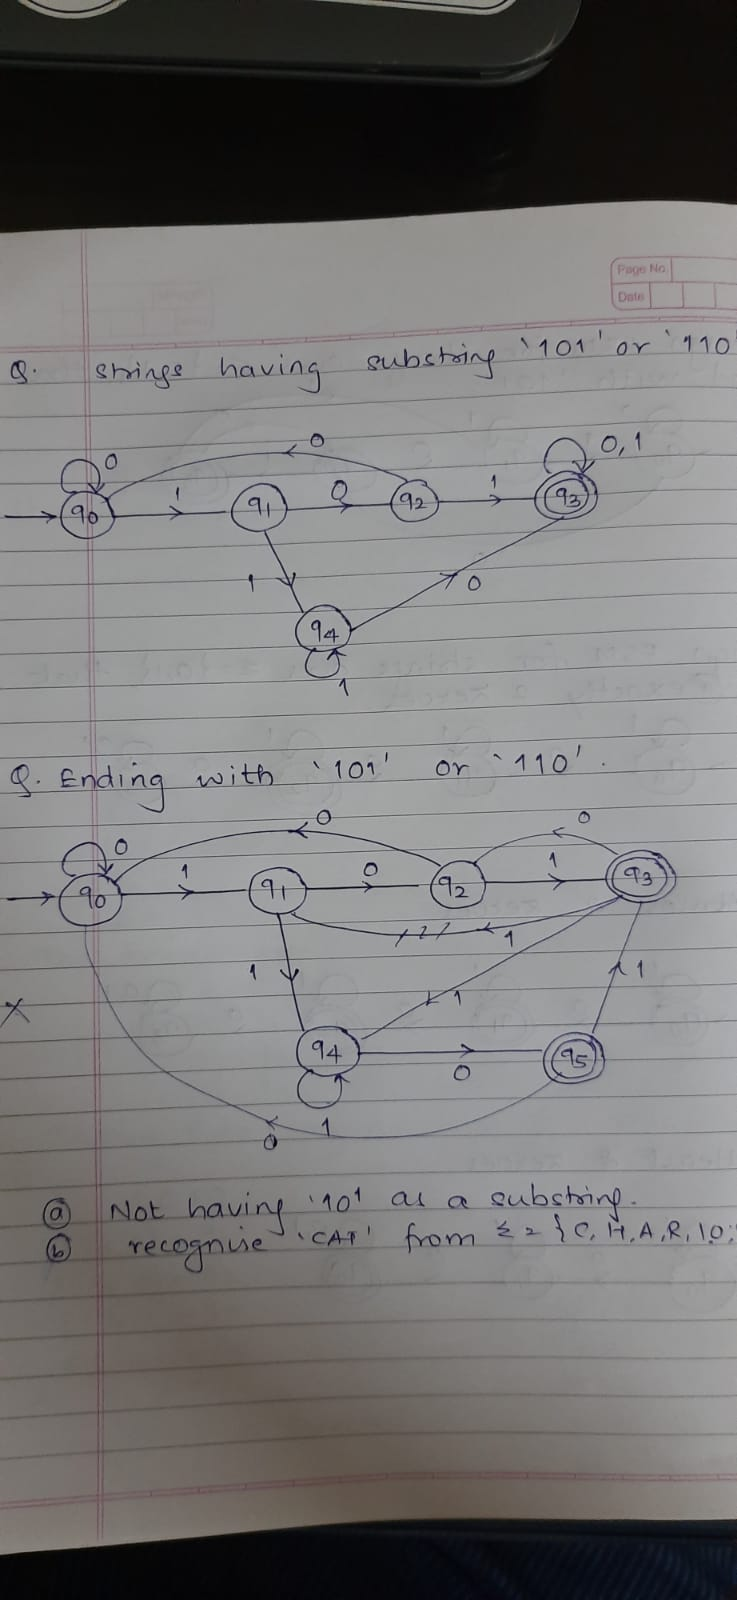 Page No.
Date
Q. strings having substring '101' or '110'
0 0 0,1
q0 1 q1 0 q2 1 q3
1 0
q4
1
Q. Ending with '101' or '110'.
0 0 0
q0 1 q1 0 q2 1 q3
1
1 1 1
X
q4 0 q5
1
0
ⓐ Not having '101 as a substring.
ⓑ recognise 'CAT' from Σ = {C, H, A, R,